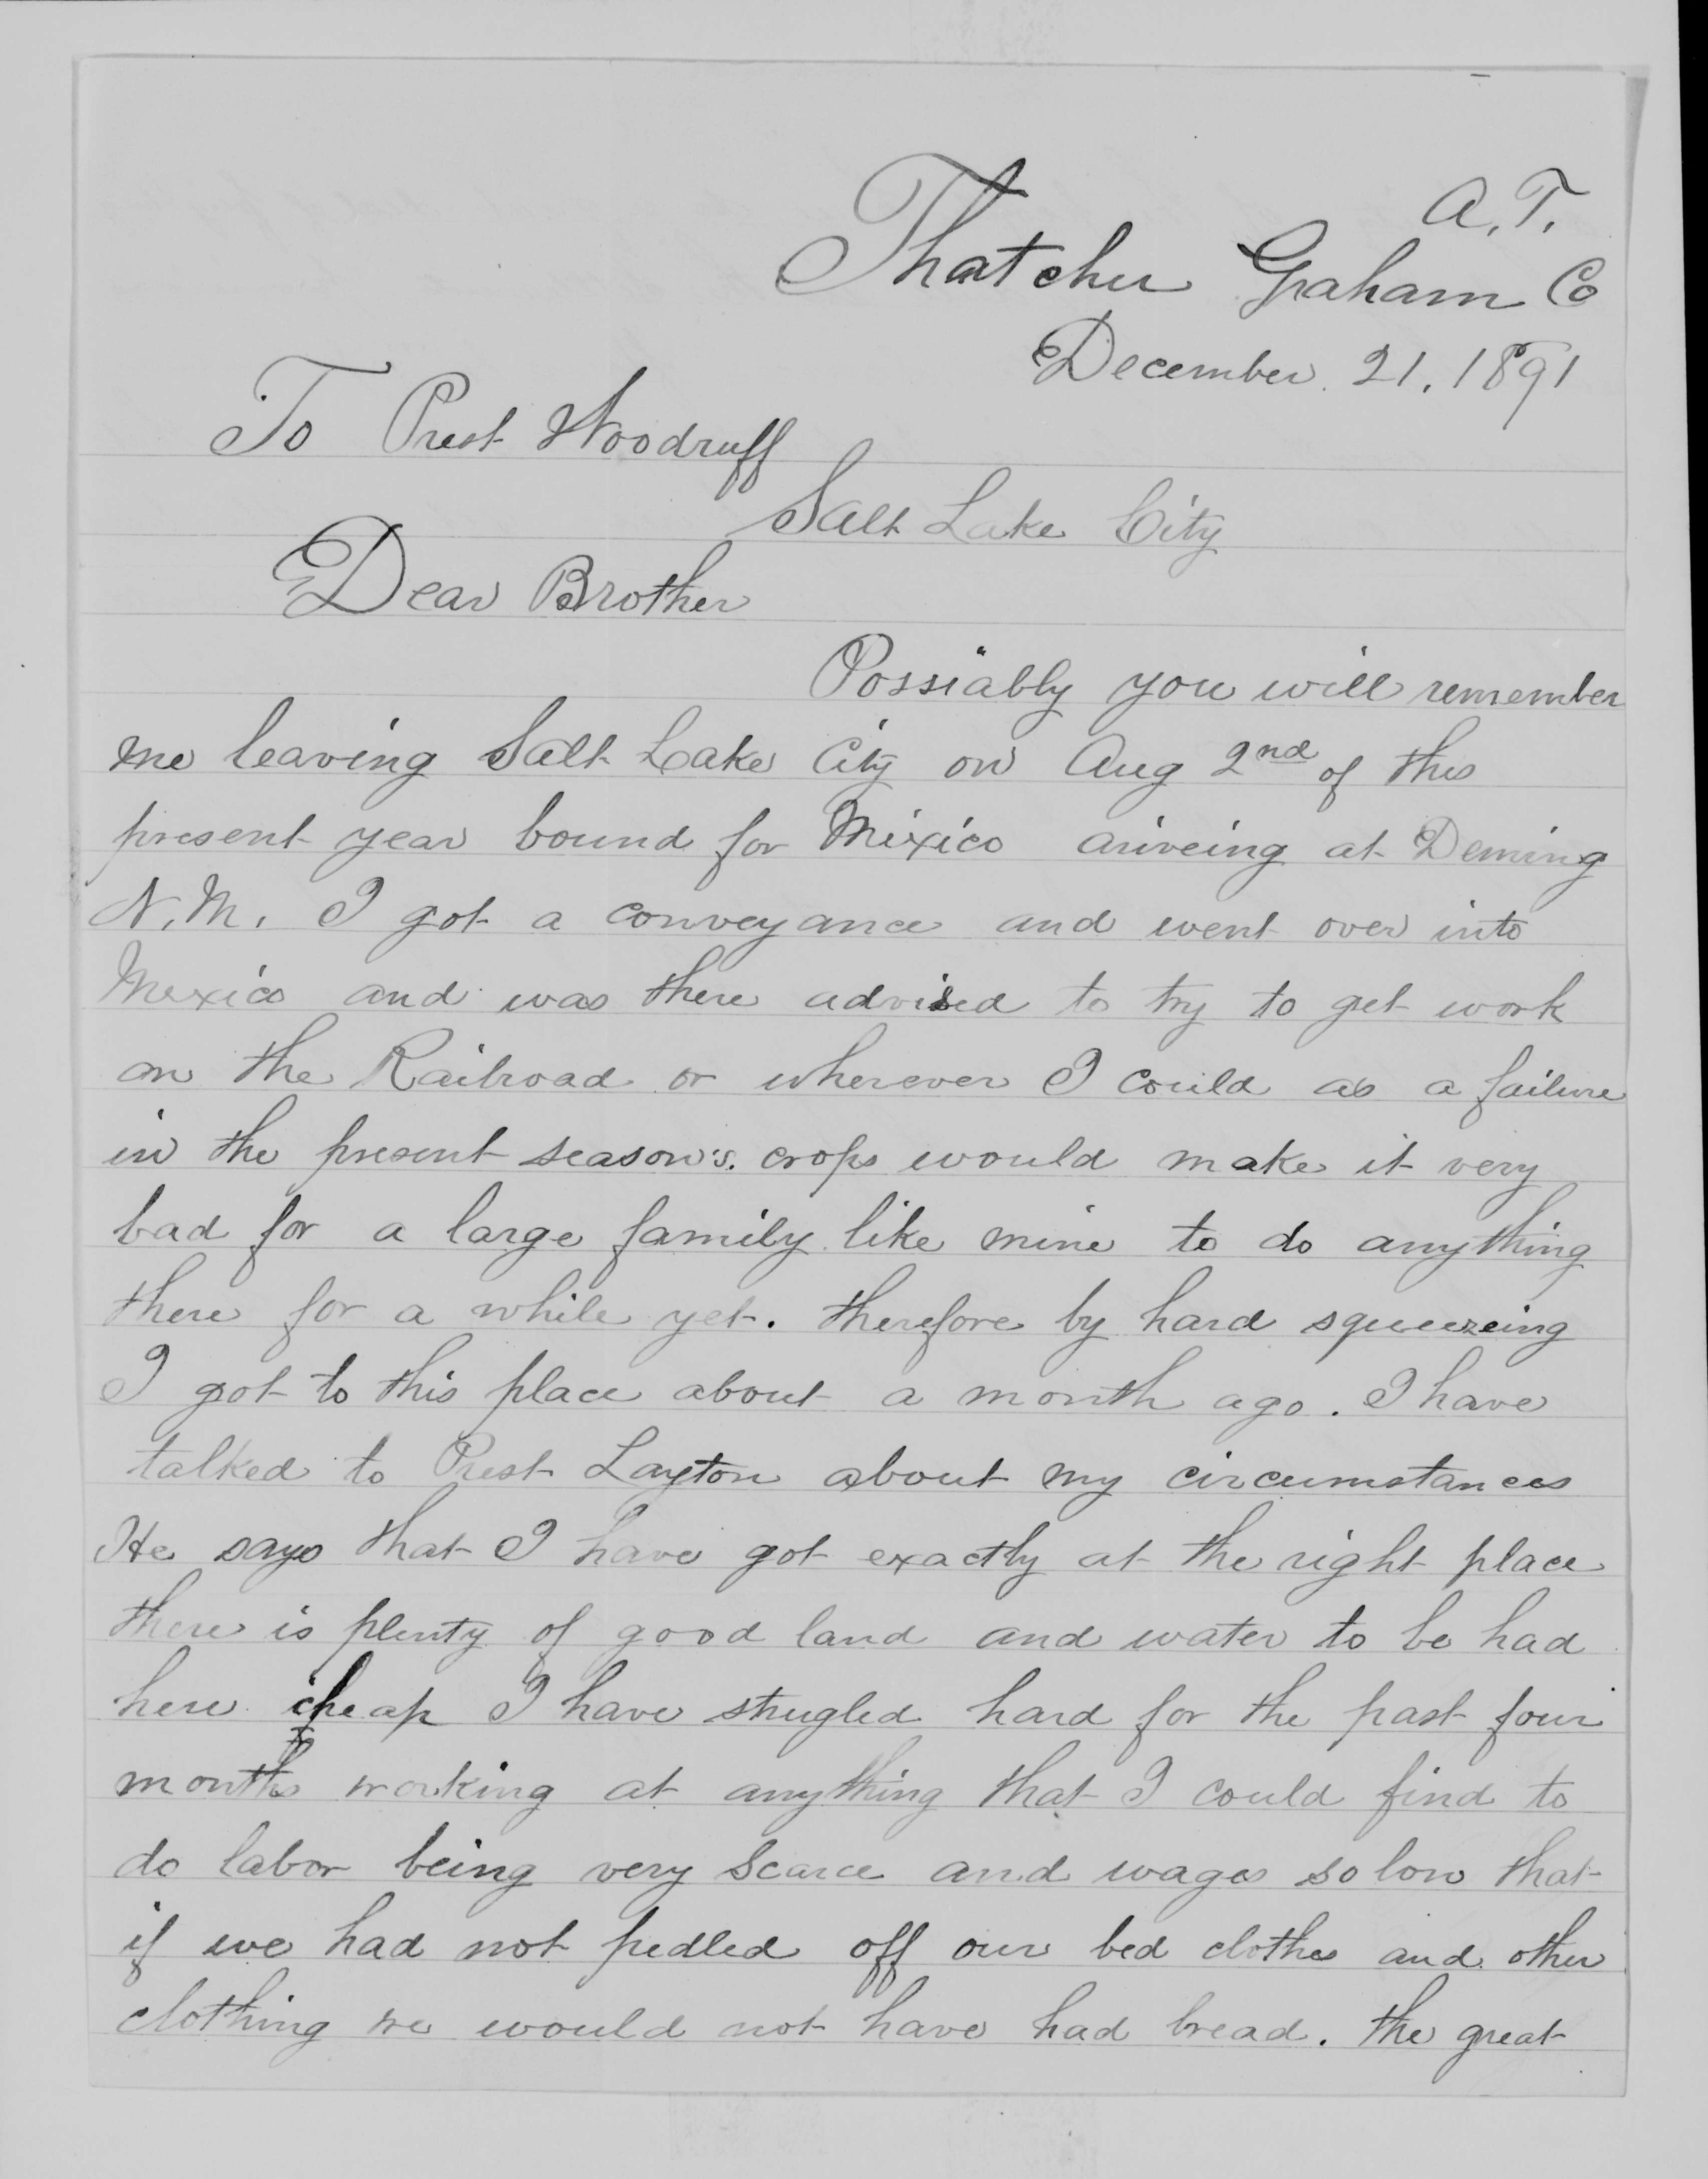 A. T.
Thatcher Graham Co
December 21, 1891
To Prest Woodruff
Salt Lake City
Dear Brother
Possiably you will remember
me leaving Salt Lake City on Aug 2nd of this
present year bound for Mixico ariveing at Deming
N. M. I got a conveyance and went over into
Mexico and was there advised to try to get work
on the Railroad or wherever I could as a failure
in the present season's crops would make it very
bad for a large family like mine to do anything
there for a while yet. therefore by hard squeezeing
I got to this place about a month ago. I have
talked to Prest Layton about my circumstances
He says that I have got exactly at the right place
there is plenty of good land and water to be had
here cheap I have strugled hard for the past four
months working at anything that I could find to
do labor being very scarce and wages so low that
if we had not pedled off our bed clothes and other
clothing we would not have had bread. the great